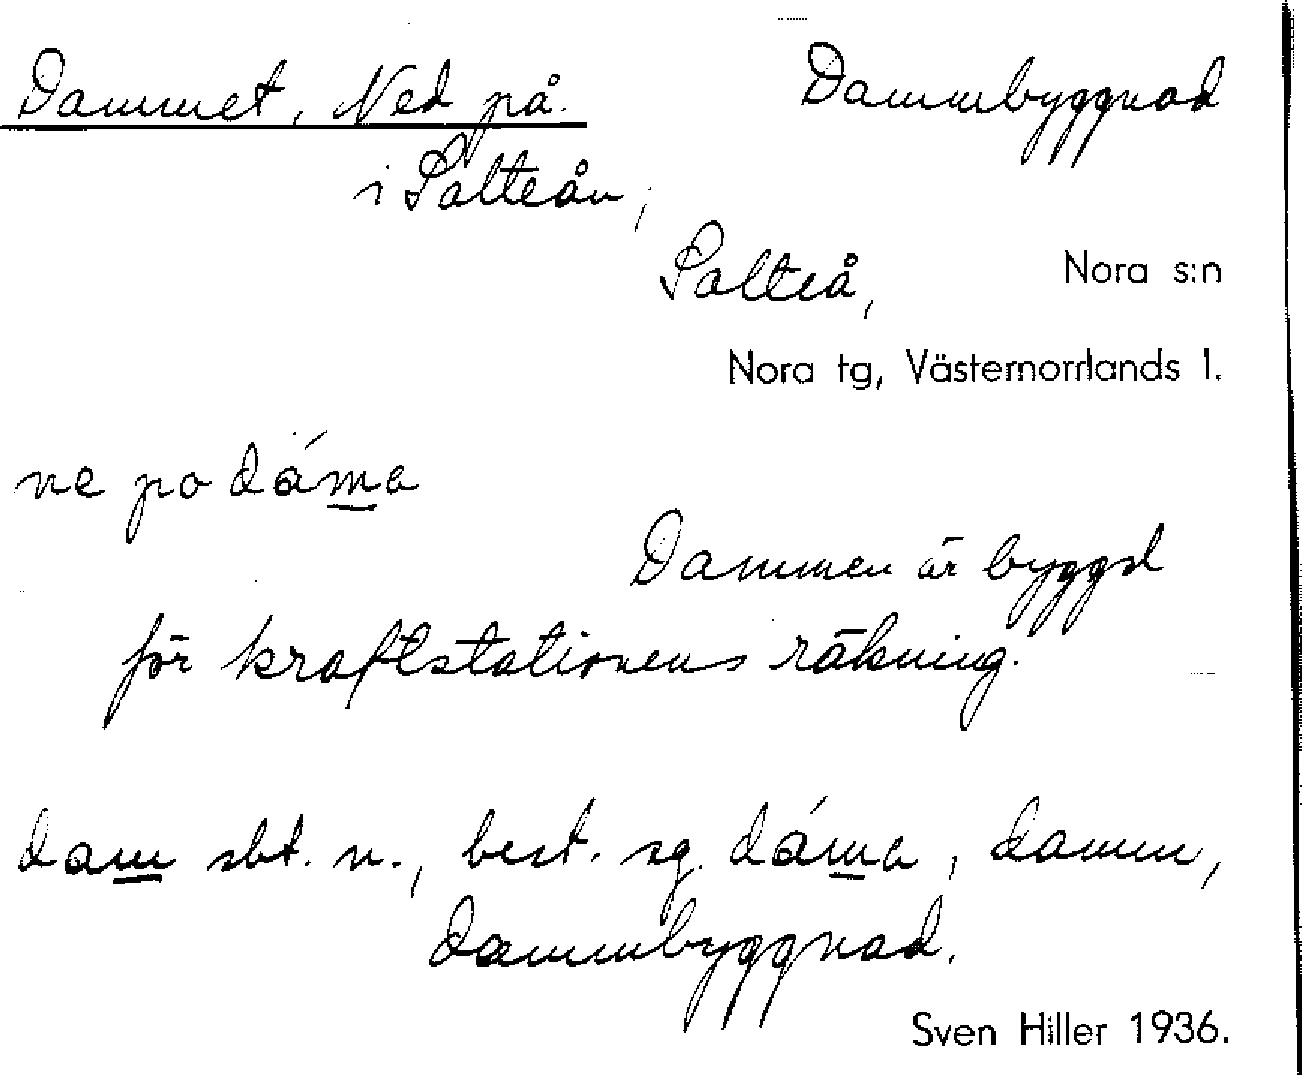 Dammet, Ned på. Dammbyggnad
i Salteån,
Salteå, Nora s:n
Nora tg, Västernorrlands l.
ne po dám̲a
Dammen är byggd
för kraftstationens räkning.
dam̲ sbt. n., best. sg. dám̲a, damm,
dammbyggnad.
Sven Hiller 1936.